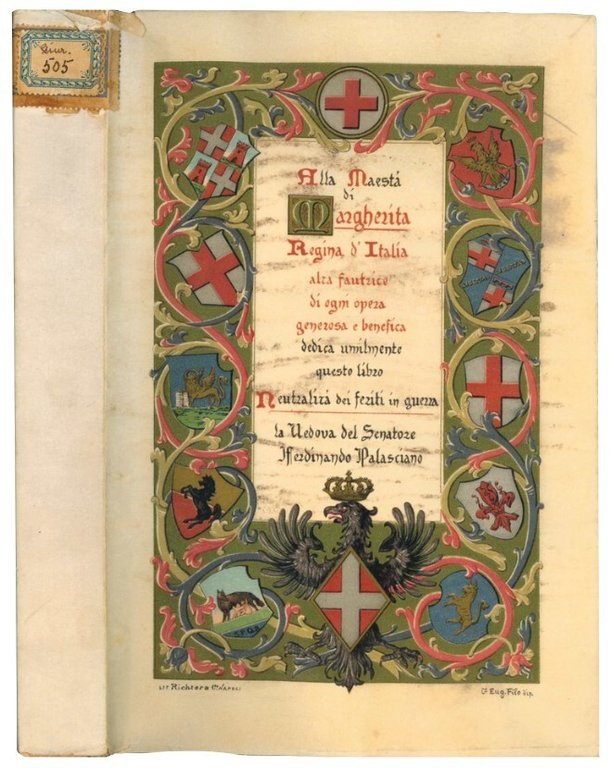 Giur.
505
Alla Maestá
di
Margherita
Regina d'Italia
alta fautrice
di ogni opera
generosa e benefica
dedica umilmente
questo libro
Neutralitá dei feriti in guerra
la Vedova del Senatore
Ferdinando Palasciano
LIBERTAS
S.P.Q.R.
LIT. Richter & Co. NAPOLI
Eug. Filo dip.